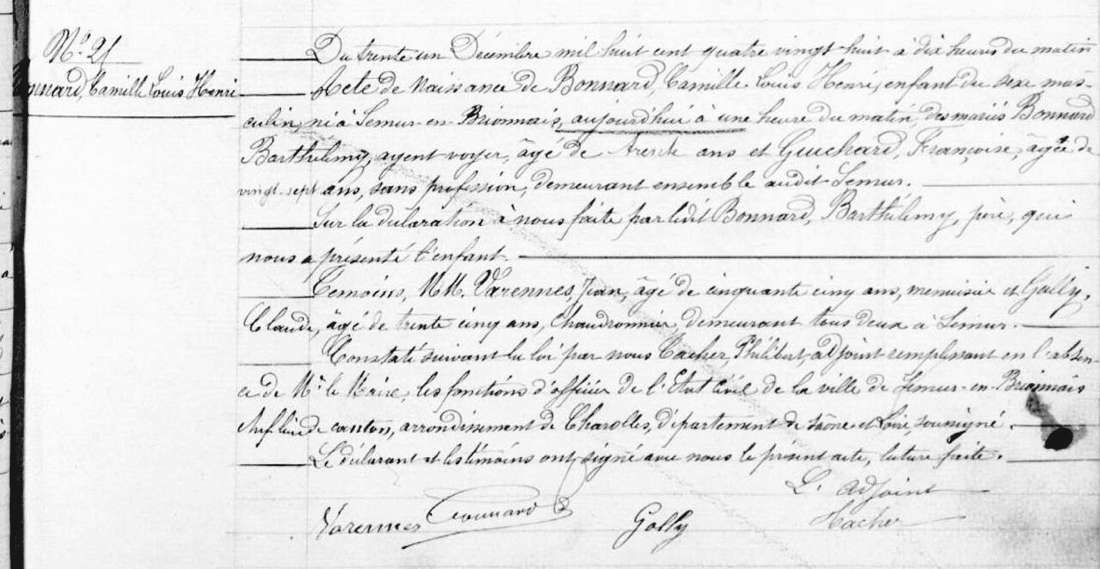 N° 21
Bonnard, Camille Louis Henri
Du trente un Décembre mil huit cent quatre vingt huit à dix heures du matin
Acte de Naissance de Bonnard, Camille Louis Henri, enfant du sexe mas-
culin, né à Semur-en-Brionnais, aujourd'hui à une heure du matin, des mariés Bonnard
Barthélemy, agent voyer, âgé de trente ans et Guichard, Françoise, âgée de
vingt-sept ans, sans profession, demeurant ensemble audit Semur.
Sur la déclaration à nous faite par ledit Bonnard, Barthélemy, père, qui
nous a présenté l'enfant.
Témoins, M.M. Varennes, Jean, âgé de cinquante cinq ans, menuisier et Golly,
Claude, âgé de trente cinq ans, chaudronnier, demeurant tous deux à Semur.
Constaté suivant la loi par nous Philibert adjoint remplissant en l'absen-
ce de Mr le Maire, les fonctions d'officier de l'Etat Civil de la ville de Semur-en-Brionnais
chef lieu de canton, arrondissement de Charolles, département de Saône et Loire soussigné.
Le déclarant et les témoins ont signé avec nous le présent acte, lecture faite.
L'adjoint
Varennes Bonnard Golly